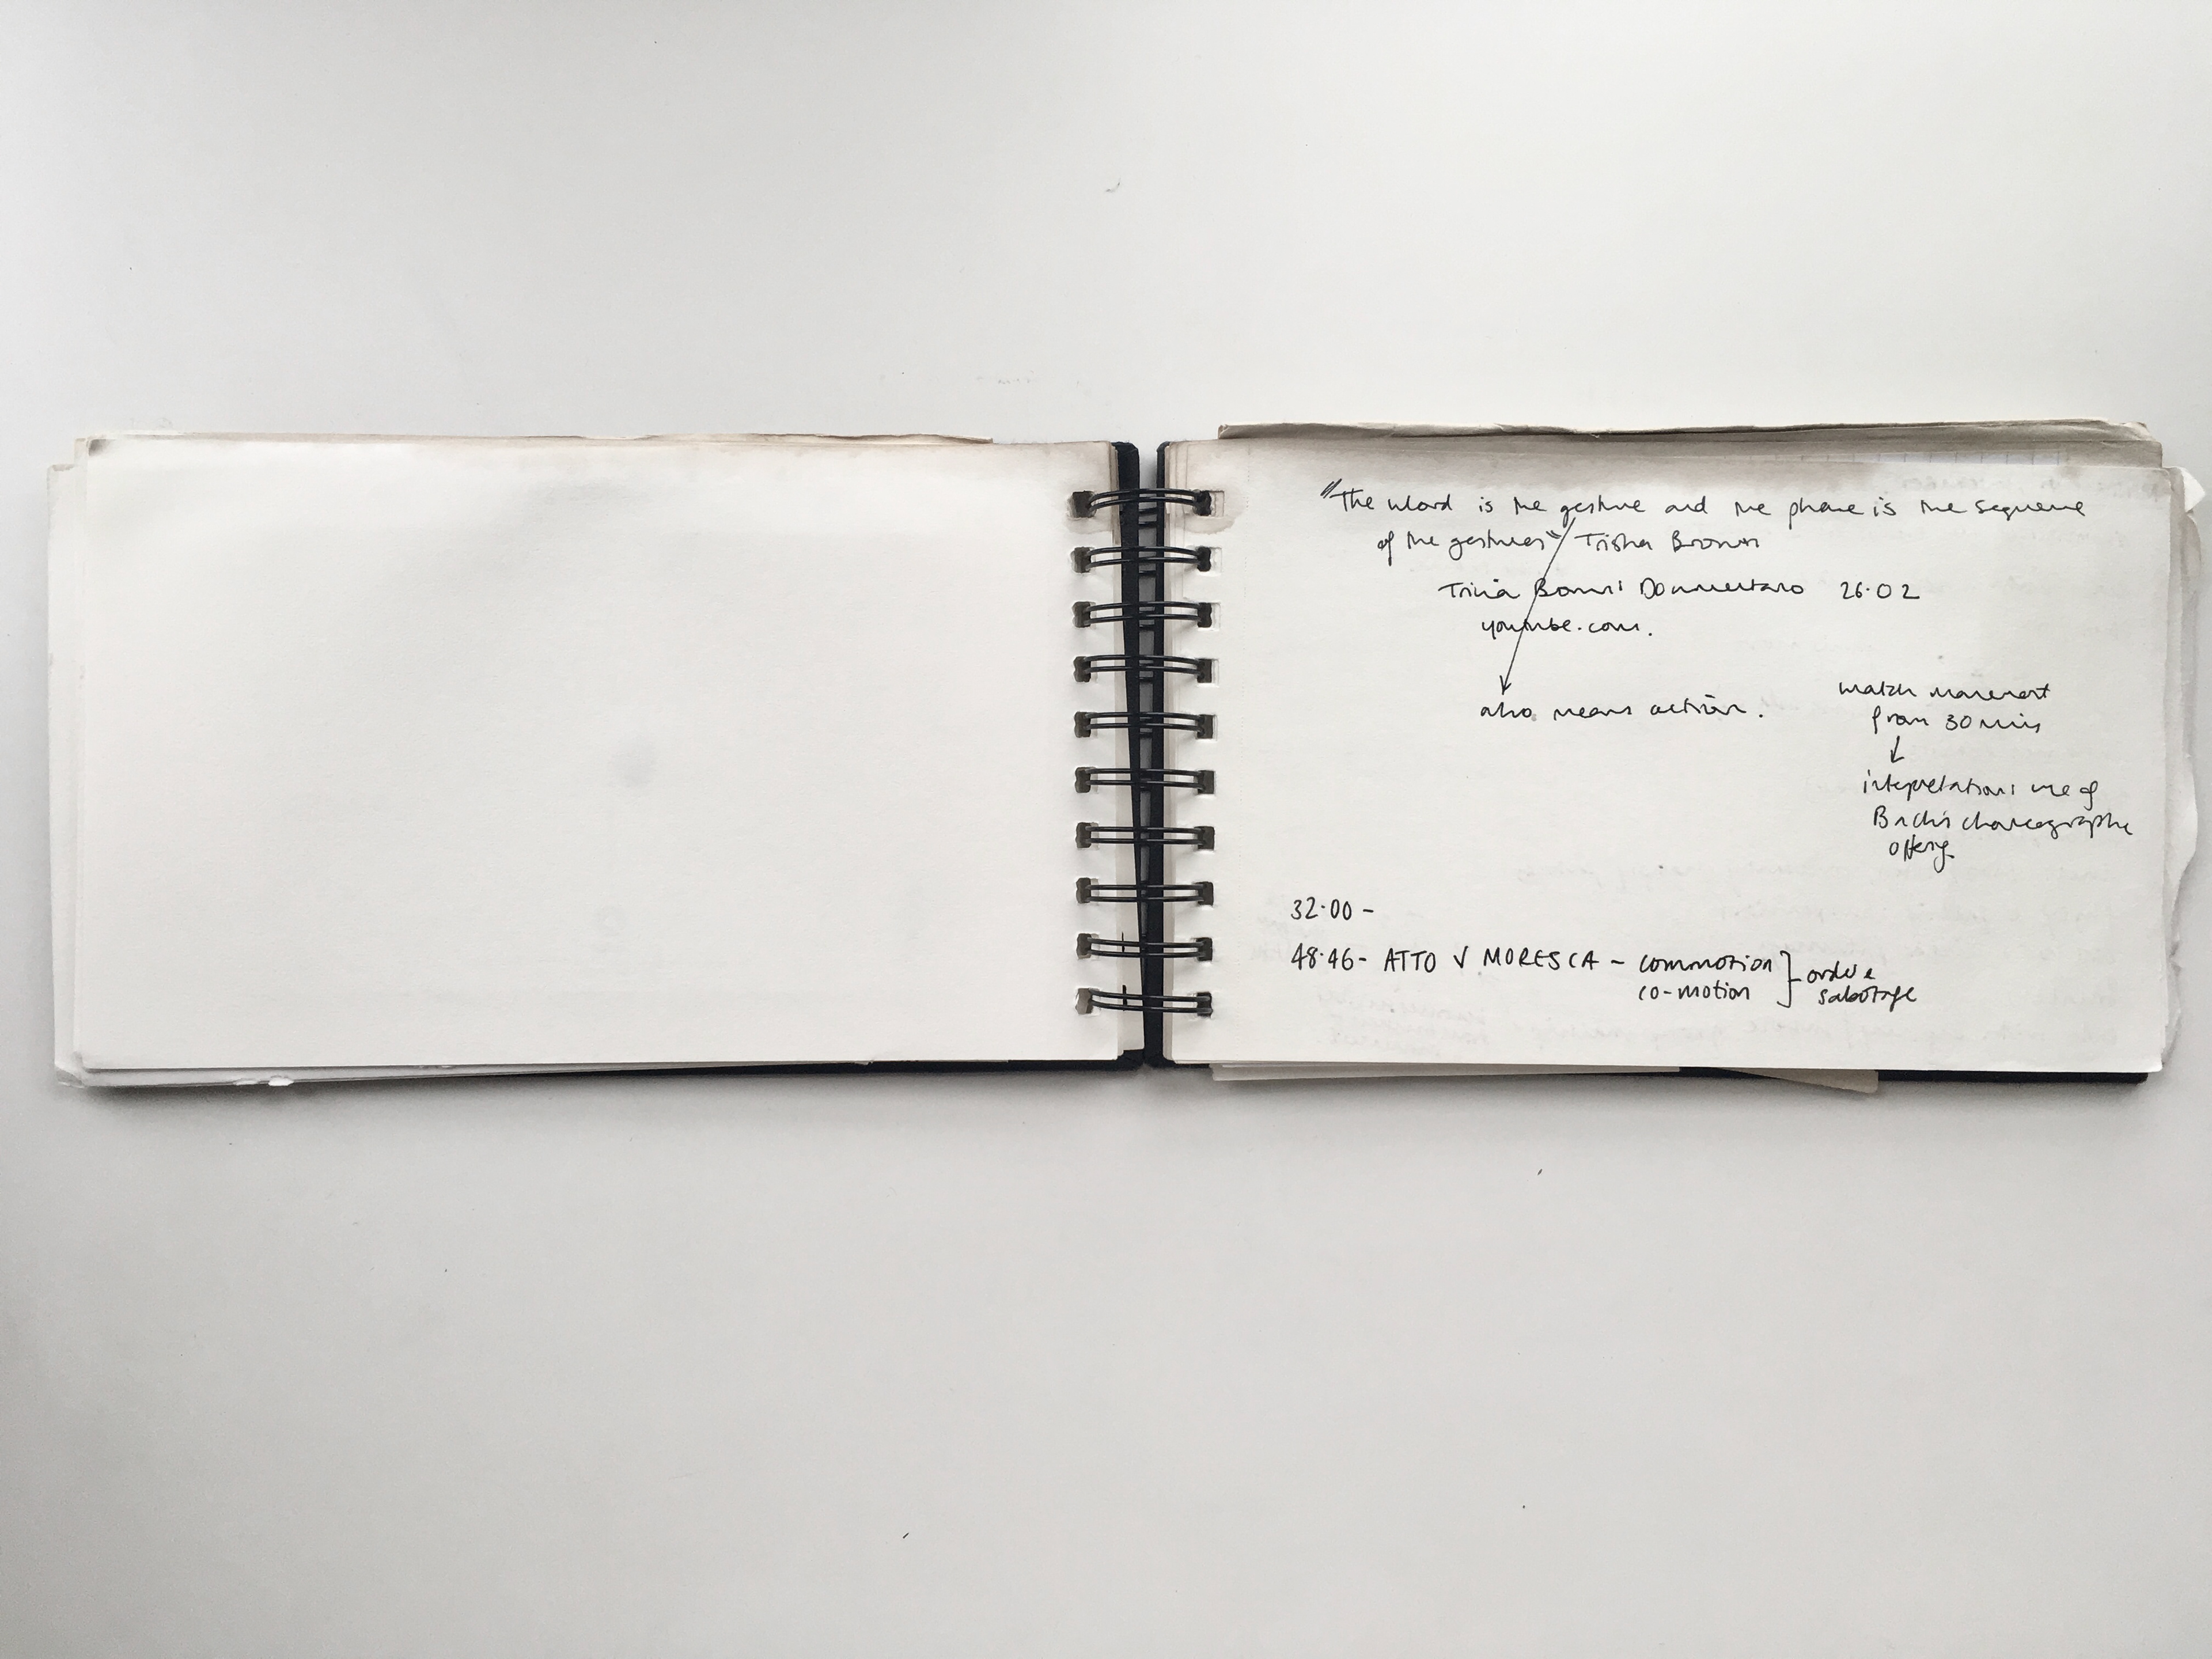 "The word is the gesture and the phrase is the sequence
of the gestures" Trisha Brown
Trisha Brown: Documentario 26.02
youtube.com.
also means action.
watch movement
from 30 mins
interpretations use of
Bach's choreographic
offering.
32.00 -
48.46 - ATTO V MORESCA - commotion
co-motion
order &
sabotage